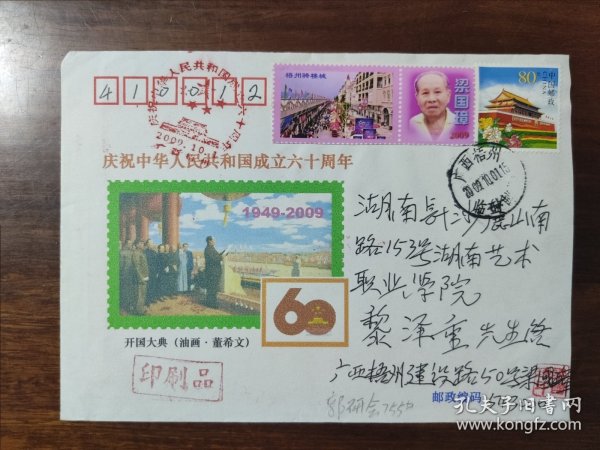 410012
庆祝中华人民共和国成立六十周年
2009.10.1
梧州骑楼城
梁国
2009
80
中国邮政
CHINA
广西梧州
2009.10.01.15
庆祝中华人民共和国成立六十周年
1949-2009
60
开国大典（油画·董希文）
印刷品
湖南长沙麓山南
路153号湖南艺术
职业学院
黎泽重先生收
广西梧州建设路50号梁国
邮政编码
孔夫子旧书网
kongfz.com